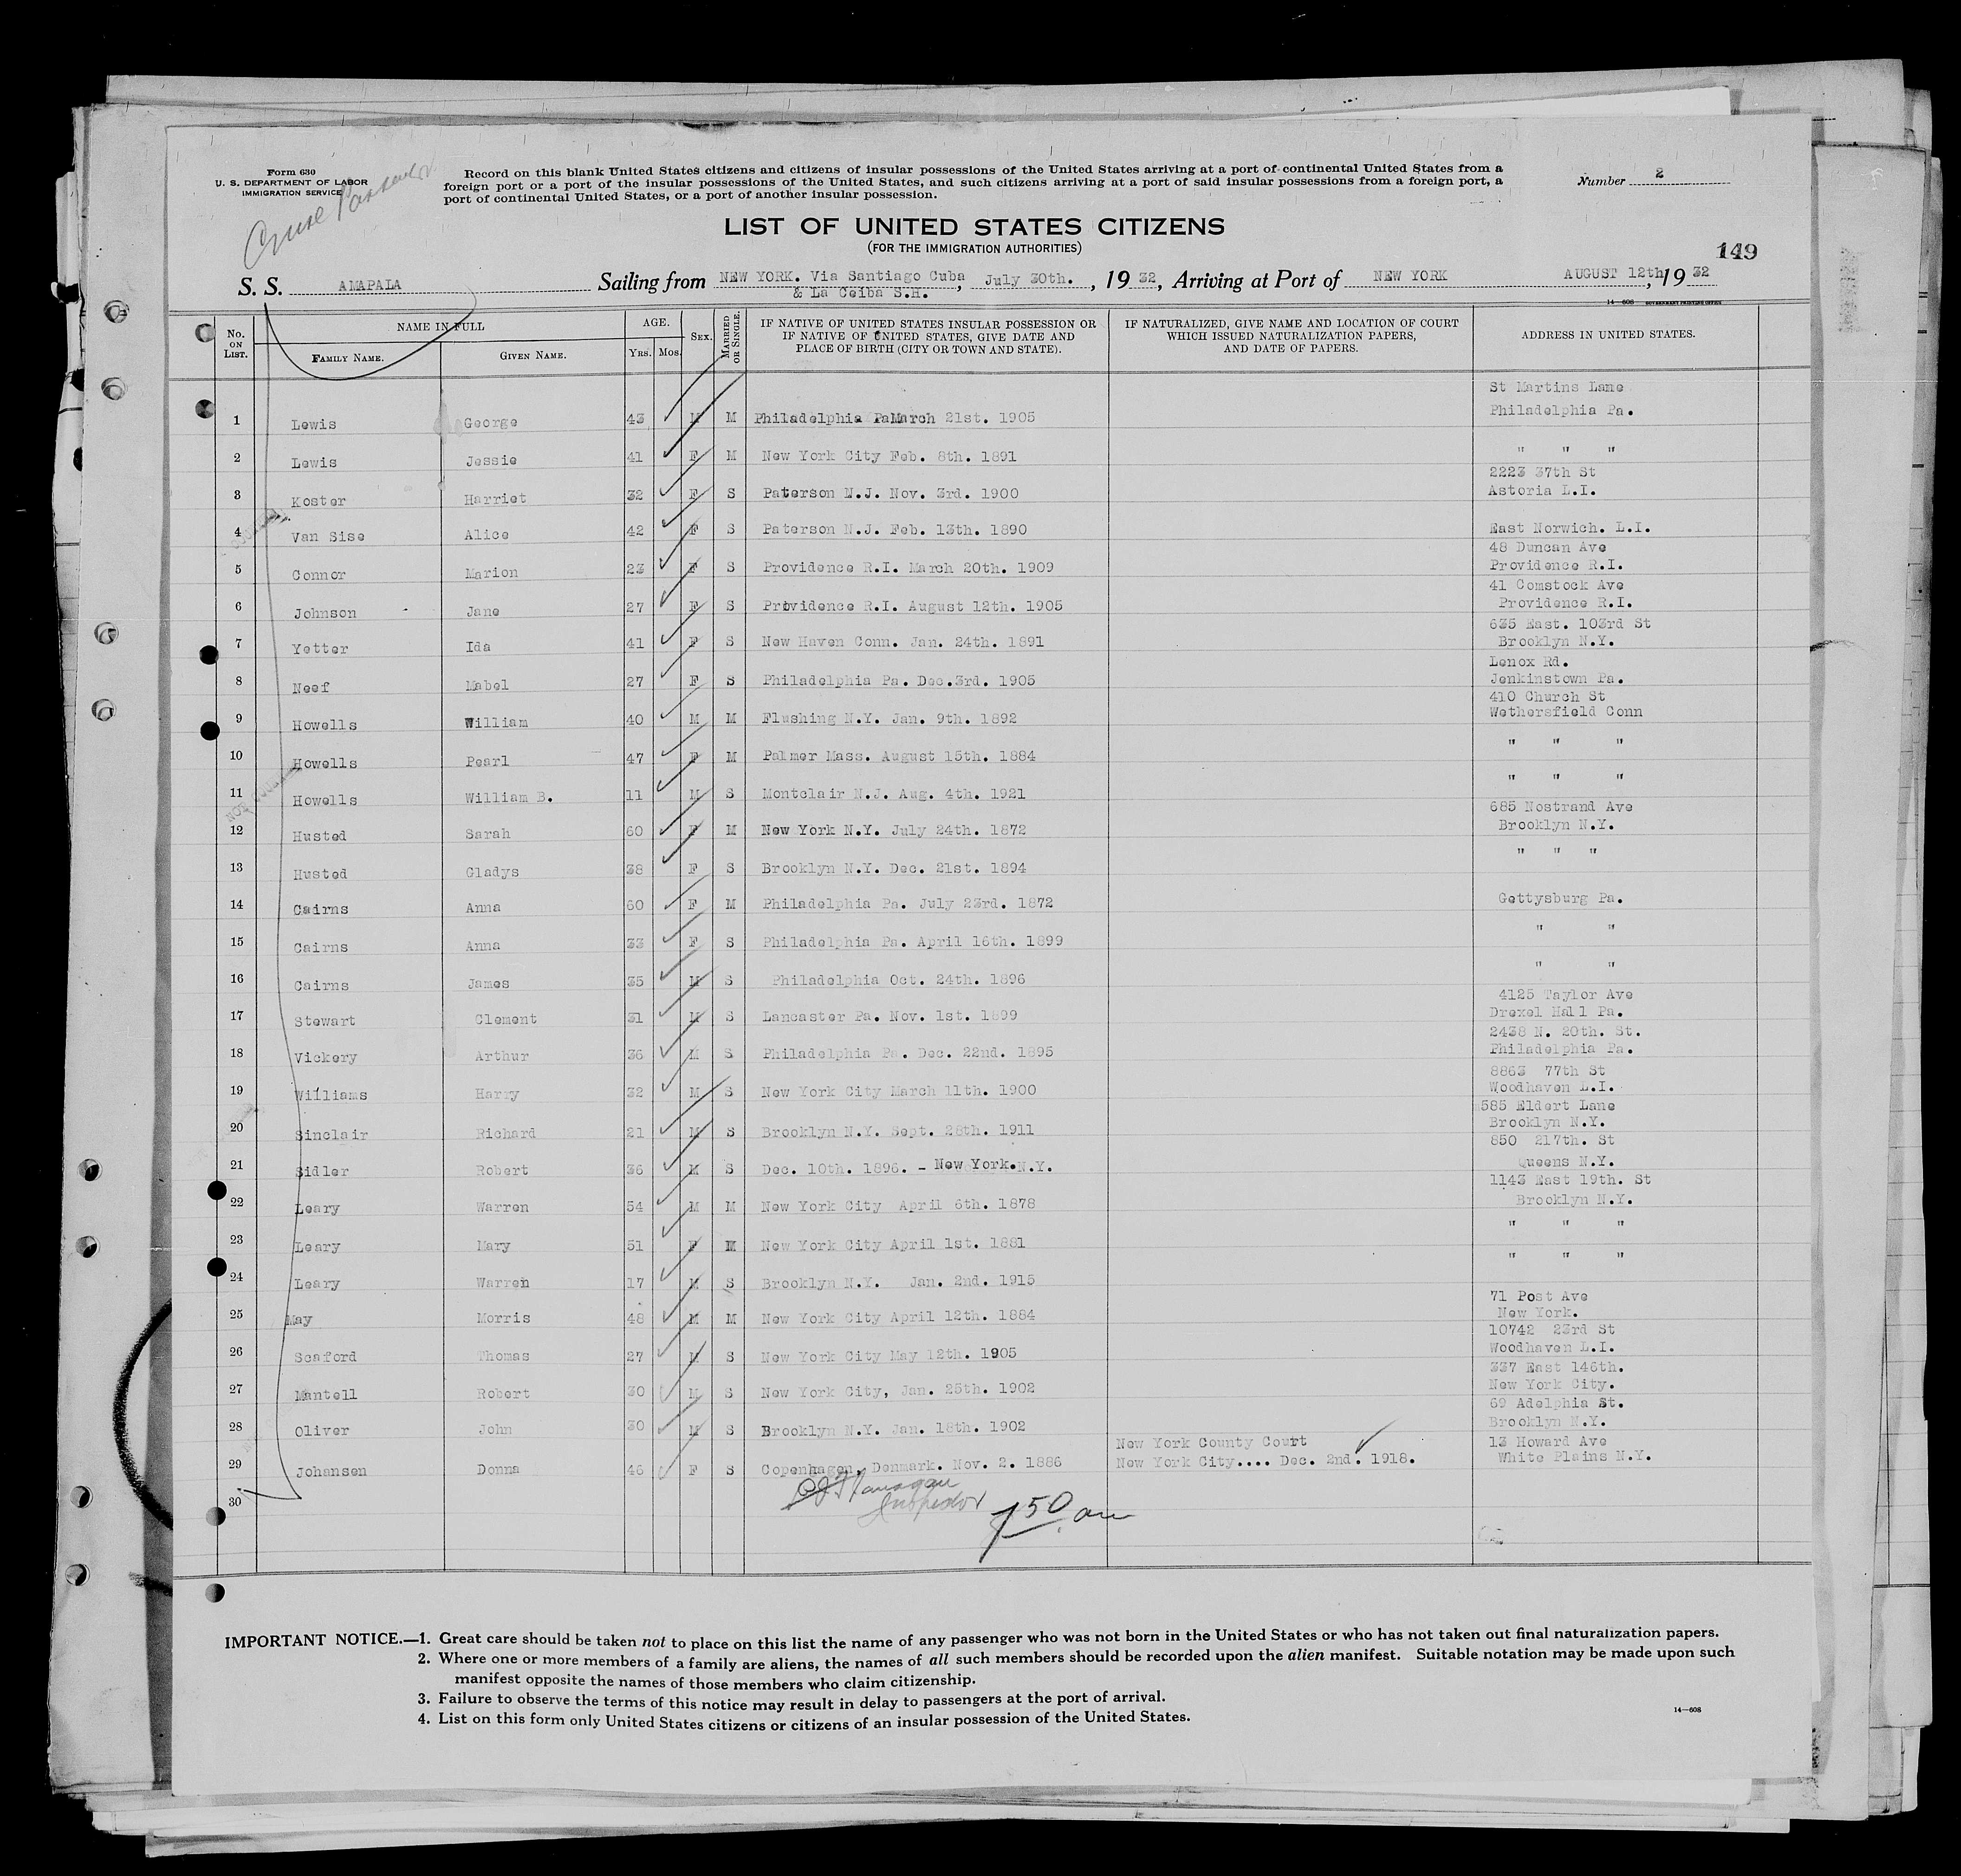 Form 630
U. S. DEPARTMENT OF LABOR
IMMIGRATION SERVICE
Record on this blank United States citizens and citizens of insular possessions of the United States arriving at a port of continental United States from a
foreign port or a port of the insular possessions of the United States, and such citizens arriving at a port of said insular possessions from a foreign port, a
port of continental United States, or a port of another insular possession.
Number 2
LIST OF UNITED STATES CITIZENS
(FOR THE IMMIGRATION AUTHORITIES)
149
S. S. AMAPALA Sailing from NEW YORK. Via Santiago Cuba & La Ceiba S.H., July 30th., 1932, Arriving at Port of NEW YORK AUGUST 12th, 1932
14—608 GOVERNMENT PRINTING OFFICE
No. ON LIST. NAME IN FULL FAMILY NAME. GIVEN NAME. AGE. YRS. MOS. SEX. MARRIED OR SINGLE. IF NATIVE OF UNITED STATES INSULAR POSSESSION OR IF NATIVE OF UNITED STATES, GIVE DATE AND PLACE OF BIRTH (CITY OR TOWN AND STATE). IF NATURALIZED, GIVE NAME AND LOCATION OF COURT WHICH ISSUED NATURALIZATION PAPERS, AND DATE OF PAPERS. ADDRESS IN UNITED STATES.
St Martins Lane
1 Lewis George 43 M M Philadelphia Pa March 21st. 1905 Philadelphia Pa.
2 Lewis Jessie 41 F M New York City Feb. 8th. 1891 " " "
2223 37th St
3 Koster Harriet 32 F S Paterson N.J. Nov. 3rd. 1900 Astoria L.I.
4 Van Sise Alice 42 F S Paterson N.J. Feb. 13th. 1890 East Norwich. L.I.
48 Duncan Ave
5 Connor Marion 23 F S Providence R.I. March 20th. 1909 Providence R.I.
41 Comstock Ave
6 Johnson Jane 27 F S Providence R.I. August 12th. 1905 Providence R.I.
635 East. 103rd St
7 Yetter Ida 41 F S New Haven Conn. Jan. 24th. 1891 Brooklyn N.Y.
Lenox Rd.
8 Neef Mabel 27 F S Philadelphia Pa. Dec.3rd. 1905 Jenkinstown Pa.
410 Church St
9 Howells William 40 M M Flushing N.Y. Jan. 9th. 1892 Wethersfield Conn
10 Howells Pearl 47 F M Palmer Mass. August 15th. 1884 " " "
11 Howells William B. 11 M S Montclair N.J. Aug. 4th. 1921 " " "
685 Nostrand Ave
12 Husted Sarah 60 F M New York N.Y. July 24th. 1872 Brooklyn N.Y.
13 Husted Gladys 38 F S Brooklyn N.Y. Dec. 21st. 1894 " " "
14 Cairns Anna 60 F M Philadelphia Pa. July 23rd. 1872 Gettysburg Pa.
15 Cairns Anna 33 F S Philadelphia Pa. April 16th. 1899 " "
16 Cairns James 35 M S Philadelphia Oct. 24th. 1896 " "
4125 Taylor Ave
17 Stewart Clement 31 M S Lancaster Pa. Nov. 1st. 1899 Drexel Hall Pa.
2438 N. 20th. St.
18 Vickery Arthur 36 M S Philadelphia Pa. Dec. 22nd. 1895 Philadelphia Pa.
8863 77th St
19 Williams Harry 32 M S New York City March 11th. 1900 Woodhaven L.I.
585 Eldert Lane
20 Sinclair Richard 21 M S Brooklyn N.Y. Sept. 28th. 1911 Brooklyn N.Y.
850 217th. St
21 Sidler Robert 36 M S Dec. 10th. 1896. - New York. N.Y. Queens N.Y.
1143 East 19th. St
22 Leary Warren 54 M M New York City April 6th. 1878 Brooklyn N.Y.
23 Leary Mary 51 F M New York City April 1st. 1881 " " "
24 Leary Warren 17 M S Brooklyn N.Y. Jan. 2nd. 1915 " " "
71 Post Ave
25 May Morris 48 M M New York City April 12th. 1884 New York.
10742 23rd St
26 Seaford Thomas 27 M S New York City May 12th. 1905 Woodhaven L.I.
337 East 146th.
27 Mantell Robert 30 M S New York City, Jan. 25th. 1902 New York City.
69 Adelphia St.
28 Oliver John 30 M S Brooklyn N.Y. Jan. 18th. 1902 Brooklyn N.Y.
New York County Court 13 Howard Ave
29 Johansen Donna 46 F S Copenhagen, Denmark. Nov. 2. 1886 New York City.... Dec. 2nd. 1918. White Plains N.Y.
30
Inspector
7 50 am
IMPORTANT NOTICE.—1. Great care should be taken not to place on this list the name of any passenger who was not born in the United States or who has not taken out final naturalization papers.
2. Where one or more members of a family are aliens, the names of all such members should be recorded upon the alien manifest. Suitable notation may be made upon such
manifest opposite the names of those members who claim citizenship.
3. Failure to observe the terms of this notice may result in delay to passengers at the port of arrival.
4. List on this form only United States citizens or citizens of an insular possession of the United States.
14—608